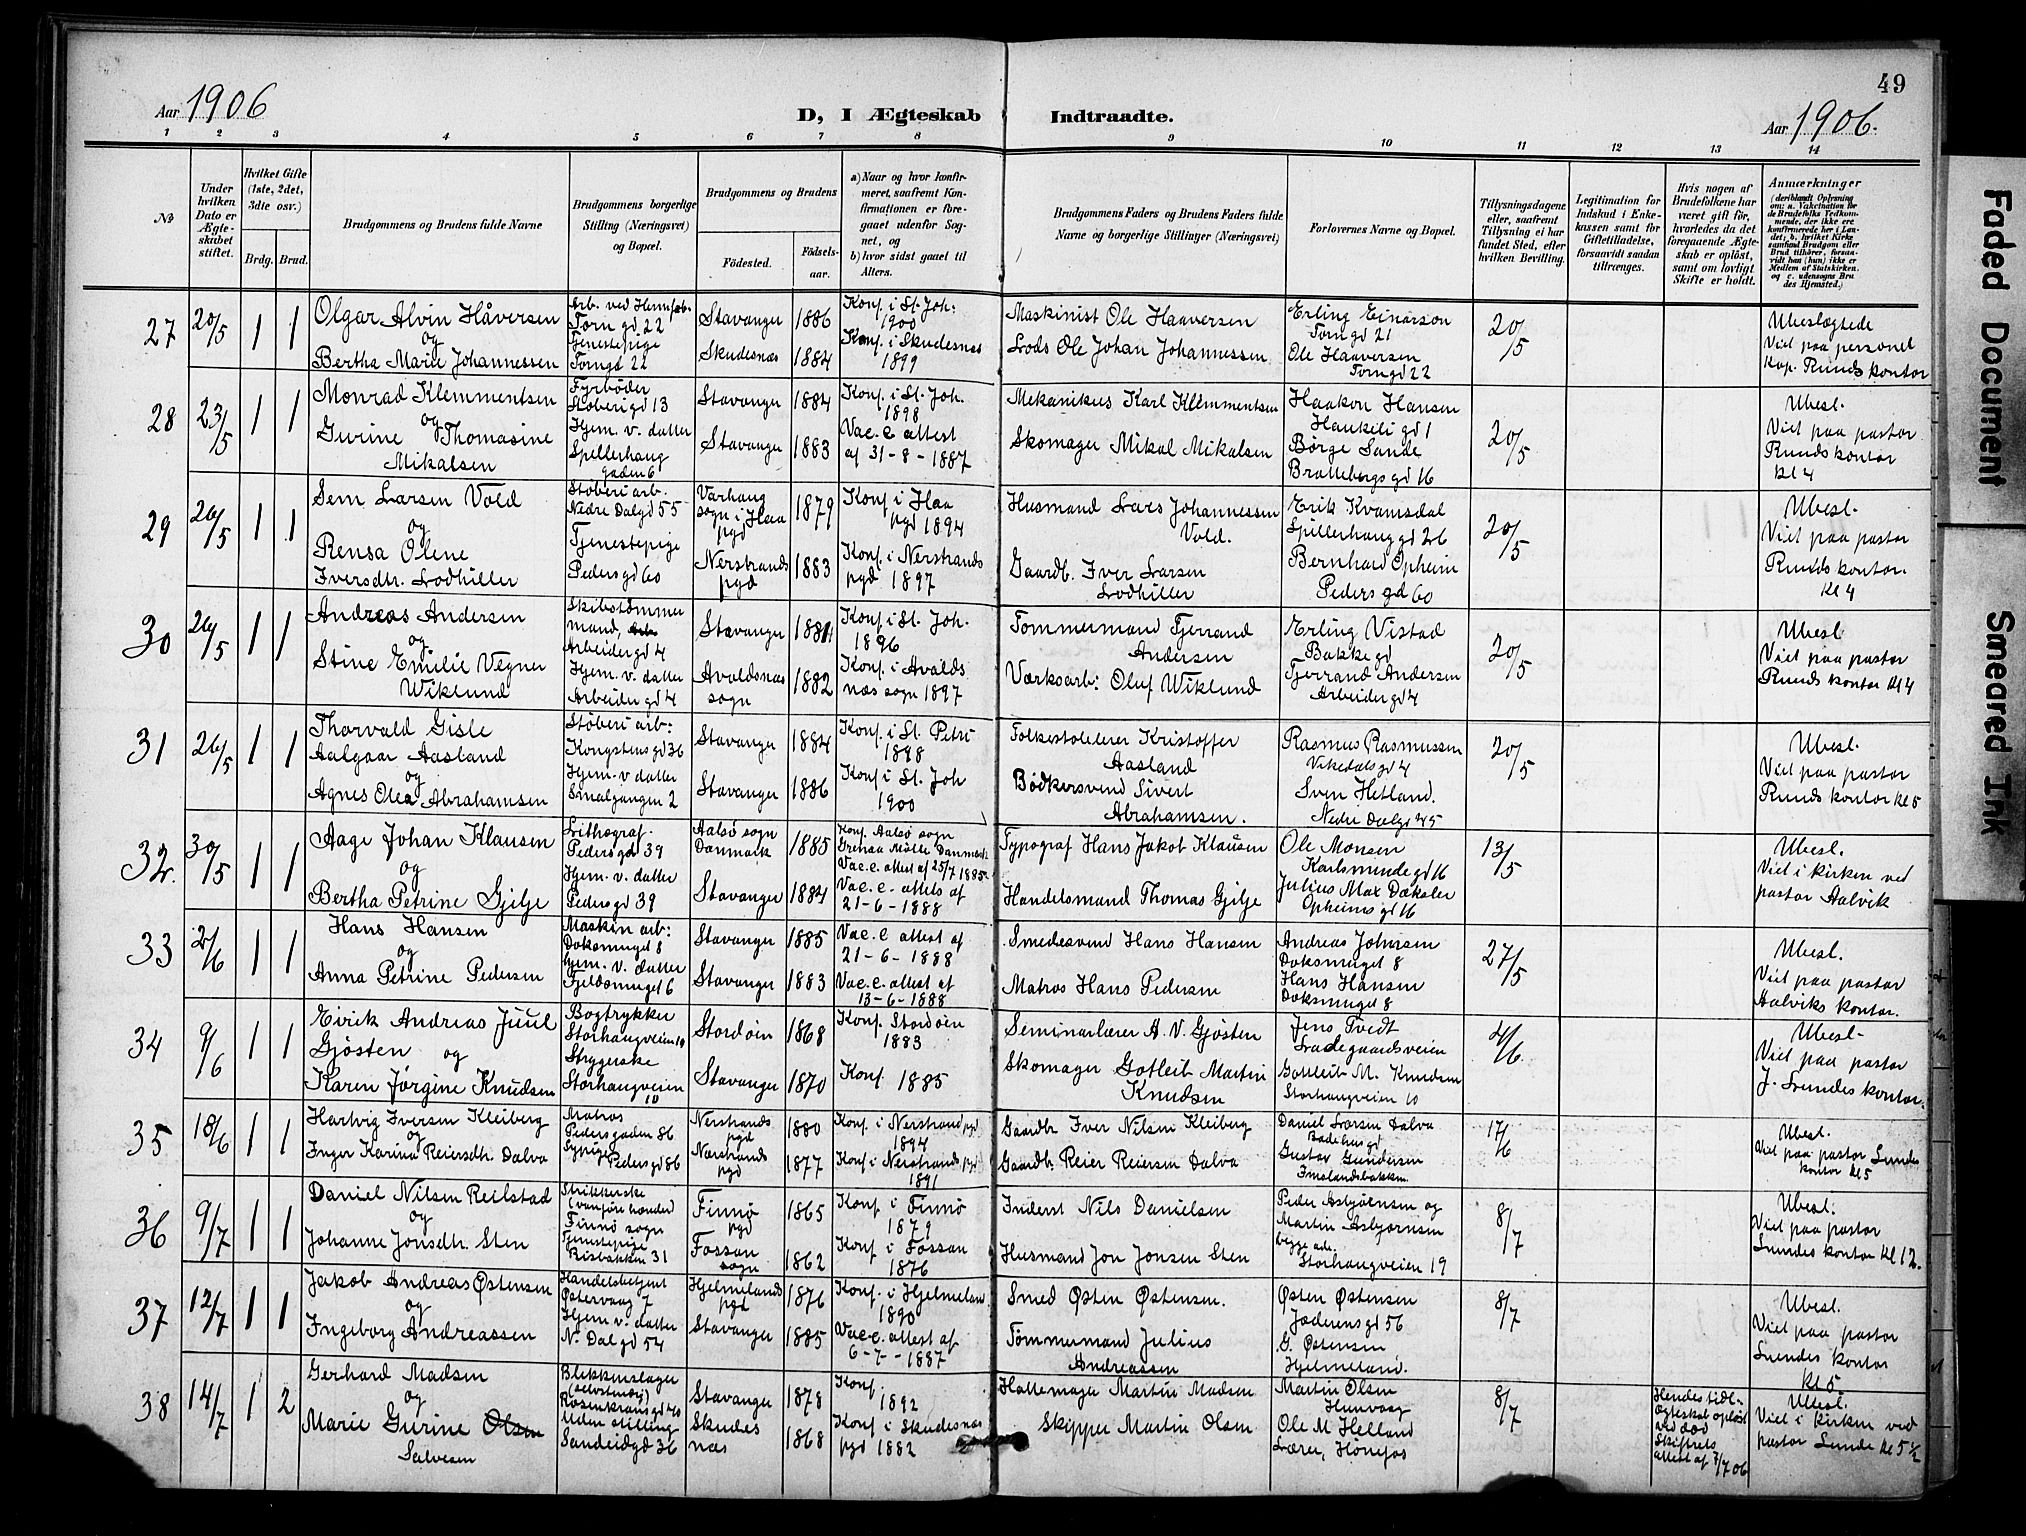 49
Aar 1906
D, I Ægteskab Indtraadte.
Aar 1906.
1 2 3 4 5 6 7 8 9 10 11 12 13 14
№
Under hvilken Dato er Ægteskabet stiftet.
Hvilket Gifte (1ste, 2det, 3die osv.)
Brdg. Brud.
Brudgommens og Brudens fulde Navne
Brudgommens borgerlige Stilling (Næringsvei) og Bopæl.
Brudgommens og Brudens
Fødested.
Fødselsaar.
a) Naar og hvor konfirmeret, saafremt Konfirmationen er foregaaet udenfor Sognet, og
b) hvor sidst gaaet til Alters.
Brudgommens Faders og Brudens Faders fulde Navne og borgerlige Stillinger (Næringsvei)
Forlovernes Navne og Bopæl.
Tillysningsdagene eller, saafremt Tillysning ei har fundet Sted, efter hvilken Bevilling.
Legitimation for Indskud i Enkekassen samt for Giftetilladelse, forsaavidt saadan tiltrænges.
Hvis nogen af Brudefolkene har været gift før, hvorledes da det foregaaende Ægteskab er opløst, samt om lovligt Skifte er holdt.
Anmærkninger
(deriblandt Oplysning om: a. Vakcination for de Brudefolks Vedkommende, der ikke ere konfirmerede her i Landet; b. hvilket Kirkesamfund Brudgom eller Brud tilhører, forsaavidt han (hun) ikke er Medlem af Statskirken, og c. udensogns Brudes Hjemsted.)
27 20/5 1 1
Olgar Alvin Håversen
og
Bertha Marie Johannessen
Arb. ved Hermfab.
Torngd 22
Tjenestepige
Torngd 22
Stavanger 1886
Skudesnæs 1884
Konf. i St. Joh. 1900
Konf. i Skudesnæs 1899
Maskinist Ole Haaversen
Lods Ole Johan Johannessen
Erling Einarson
Torngd 21
Ole Haaversen
Torngd 22
20/5
Ubeslægtede
Viet paa personel
Kap. Runds kontor
28 23/5 1 1
Monrad Klemmentsen
og
Gurine Thomasine
Mikalsen
Fyrbøder
Støberigd 13
Hjem. v. datter
Spellerhaug
gaden 6
Stavanger 1884
Stavanger 1883
Konf. i St. Joh. 1898
Vac. c attest
af 31-8-1887
Mekanikus Karl Klemmentsen
Skomager Mikal Mikalsen
Haakon Hansen
Haukeligd 1
Børge Sande
Brattebergsgd 16
20/5
Ubesl.
Viet paa pastor
Runds kontor
kl 4
29 26/5 1 1
Sem Larsen Vold
og
Rensa Olene
Iversdtr. Lodhiller
Støberiarb.
Nedre Dalgd 55
Tjenestepige
Pedersgd 60
Varhaug
sogn i Haa
pgd 1879
Nerstrands
pgd 1883
Konf i Haa
pgd 1894
Konf. i Nerstrands
pgd 1897
Husmand Lars Johannessen
Vold.
Gaardb. Iver Larsen
Lodhiller
Erik Kvamsdal
Spillerhauggd 26
Bernhard Opheim
Pedersgd 60
20/5
Ubesl.
Viet paa pastor
Runds kontor.
kl 4
30 26/5 1 1
Andreas Andersen
og
Stine Emilie Vegner
Wiklund
Skibstømmer
mand,
Arbeidergd 4
Hjem. v. datter
Arbeidergd 4
Stavanger 1881
Avaldsnæs
sogn 1882
Konf i St. Joh.
1896
Konf. i Avalds
næs sogn 1897
Tømmermand Tjerrand
Andersen
Værksarb: Oluf Wiklund
Erling Vistad
Bakkegd
Tjerrand Andersen
Arbeidergd 4
20/5
Ubesl
Viet paa pastor
Runds kontor kl 4
31 26/5 1 1
Thorvald Gisle
Aalgaar Aasland
og
Agnes Olea Abrahamsen
Støberiarb:
Kongstensgd 36
Hjem. v datter
Smalgangen 2
Stavanger 1884
Stavanger 1886
Konf. i St. Petri
1898
Konf i St. Joh
1900
Folkestolelærer Kristoffer
Aasland
Bødkersvend Sivert
Abrahamsen.
Rasmus Rasmussen
Vikedalsgd 4
Sven Hetland.
Nedre Dalgd 45
20/5
Ubesl.
Viet paa pastor
Runds kontor kl 5
32. 30/5 1 1
Aage Johan Klausen
og
Bertha Petrine Gilje
Lithograf.
Pedersgd 39
Hjem. v. datter
Pedersgd 39
Aalsø sogn
Danmark 1885
Stavanger 1884
Konf. Aalsø sogn
Grenaa Mølle Danmark
Vac.c. attest af 25/7 1885
Vac. c. attels af
21-6-1888
Typograf Hans Jakob Klausen
Handelsmand Thomas Gilje
Ole Monsen
Karlsmindegd 16
Julius Max Dæksler
Opheimsgd 16
13/5
Ubesl.
Viet i kirken ved
pastor Aalvik
33 2/6 1 1
Hans Hansen
og
Anna Petrine Pedersen
Maskin arb:
Doksmuget 8
Hjem. v. datter
Fjeldsmuget 6
Stavanger 1885
Stavanger 1883
Vac. c attest af
21-6-1888
Vac. c. attest af
13-6-1888
Smedesvend Hans Hansen
Matros Hans Pedersen
Andreas Johnsen
Doksmuget 8
Hans Hansen
Doksmuget 8
27/5
Ubesl.
Viet paa pastor
Aalviks kontor.
34 9/6 1 1
Eirik Andreas Juul
Gjøsten og
Karen Jørgine Knudsen
Bogtrykker
Storhaugveien 10
Strygerske
Storhaugveien
10
Stordøen 1868
Stavanger 1870
Konf. Stordøen
1883
Konf 1885
Seminarlærer A. V. Gjøsten
Skomager Gotleib Martin
Knudsen
Jens Tvedt
Ladegaardsveien
Gottleib M. Knudsen
Storhaugveien 10
4/6
Ubesl.
Viet paa pastor
J. Lundes kontor.
35 18/6 1 1
Hartvig Iversen Kleiberg
og
Inger Karina Reiersdtr. Dalva
Matros
Pedersgaden 86
Sypige
Pedersgd 86
Nerstrands
pgd 1880
Nærstrands
pgd 1877
Konf. i Nerstrand pgd
1894
Konf i Nerstrands pgd
1891
Gaardbr Iver Nilsen Kleiberg
Gaardb. Reier Reiersen Dalva
Daniel Larsen Dalva
Badehusgd
Gustav Gundersen
Imslandsbakken
17/6
Ubesl.
Viet paa pastor Lundes
kontor kl 5
36 9/7 1 1
Daniel Nilsen Reilstad
og
Johanne Jonsdtr. Sten
Strikkerske
Finnø sogn
Tjenestepige
Risbakken 31
Finnø
pgd 1865
Fossan
sogn 1862
Konf i Finnø
1879
Konf i Fossan
1876
Inderst Nils Danielsen
Husmand Jon Jonsen Sten
Peder Asbjørnsen og
Martin Asbjørnsen
begge adr.
Storhaugveien 19
8/7
Ubesl:
Viet paa pastor
Lundes kontor kl 12.
37 12/7 1 1
Jakob Andreas Østensen
og
Ingeborg Andreassen
Handelsbetjent
Østervaag 7
Hjem v. datter
N. Dalgd 54
Hjelmelands
pgd 1876
Stavanger 1885
Konf. i Hjelmeland
1890
Vac.c. attest af
6-7-1887
Smed Østen Østensen.
Tømmermand Julius
Andreassen
Østen Østensen
Jæderensgd 56
G. Østensen
Hjelmeland.
8/7
Ubesl.
Viet paa pastor
Lundes kontor
kl 5
38 14/7 1 2
Gerhard Madsen
og
Marie Gurine Olsen
Salvesen
Blikkenslager
(selvstændig)
Rosenkransgd 40
Uden stilling
Sandeidgd 36
Stavanger 1878
Skudes
næs 1868
Konf
1892
Konf. i Skudesnæs
pgd 1882
Hattemager Martin Madsen
Skipper Martin Olsen
Martin Olsen
Hunvaag
Ole M Helland
Lærer, Hønefos
8/7
Hendes tidl.
Ægteskab opløst
ved død
Skifterets
attest af 7/7 06
Ubesl.
Viet i kirken ved
pastor Lunde kl 5 1/2
Faded Document
Smeared Ink